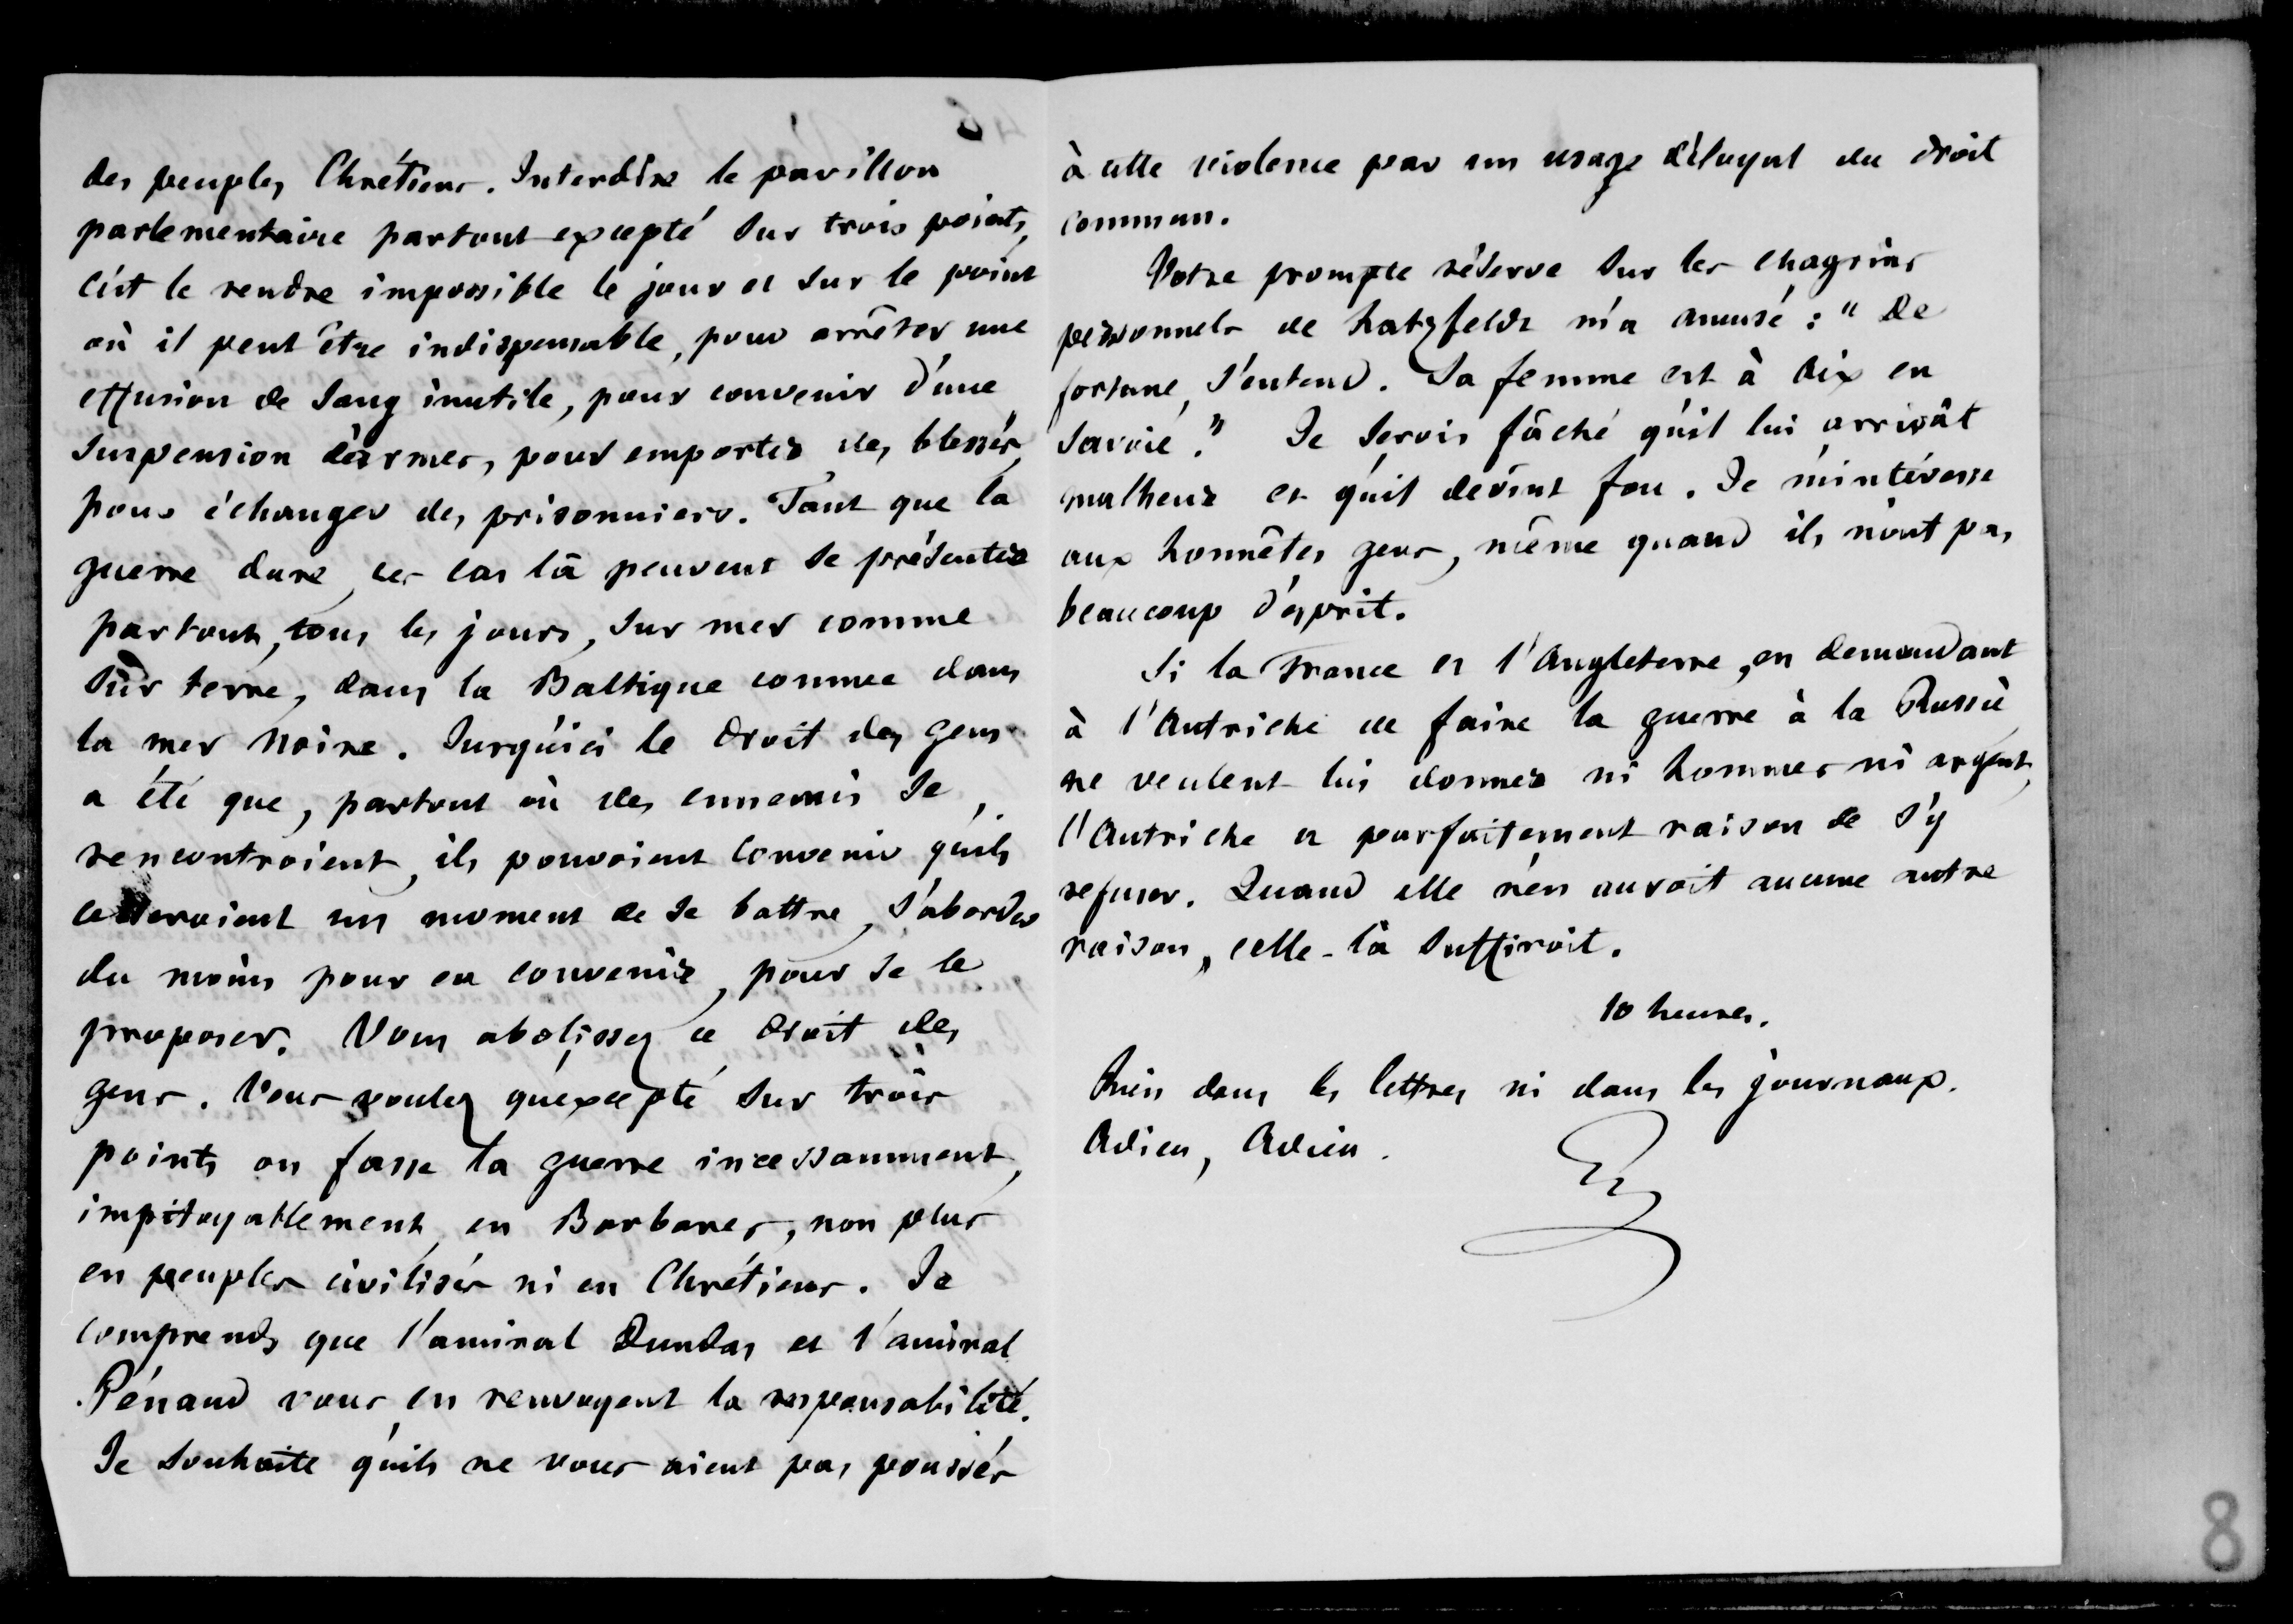 des peuples Chrétiens. Interdire le pavillon
parlementaire partout excepté sur trois points,
c'est le rendre impossible le jour et sur le point
où il peut être indispensable, pour arrêter une
effusion de sang inutile, pour convenir d'une
suspension d'armes, pour emporter des blessés,
pour échanger des prisonniers. Tant que la
guerre dure, ces cas là peuvent se présenter
partout, tous les jours, sur mer comme
sur terre, dans la Baltique comme dans
la mer noire. Jusqu'ici le droit des gens
a été que, partout où des ennemis se
rencontroient, ils pouvoient convenir qu'ils
cesseroient un moment de se battre, s'aborder
du moins pour en convenir, pour se le
proposer. Vous abolissez ce droit des
gens. Vous voulez qu'excepté sur trois
points on fasse la guerre incessamment,
impitoyablement, en Barbares, non plus
en peuples civilisés ni en Chrétiens. Je
comprends que l'amiral Dundas et l'amiral
Pénaud vous en renvoyent la responsabilité.
Je souhaite qu'ils ne vous aient pas poussés
à cette violence par un usage déloyal du droit
commun.
Votre prompte réserve sur les chagrins
personnels de hatzfeldt m'a amusé : "de
fortune, s'entend. Sa femme est à Aix en
Savoie." Je serois fâché qu'il lui arrivât
malheur et qu'il devint fou. Je m'intéresse
aux honnêtes gens, même quand ils n'ont pas
beaucoup d'esprit.
Si la France et l'Angleterre, en demandant
à l'Autriche de faire la guerre à la Russie
ne veulent lui donner ni hommes ni argent,
l'Autriche a parfaitement raison de s'y
refuser. Quand elle n'en auroit aucune autre
raison, celle-là suffiroit.
10 heures.
Rien dans les lettres ni dans les journaux.
Adieu, Adieu.
8